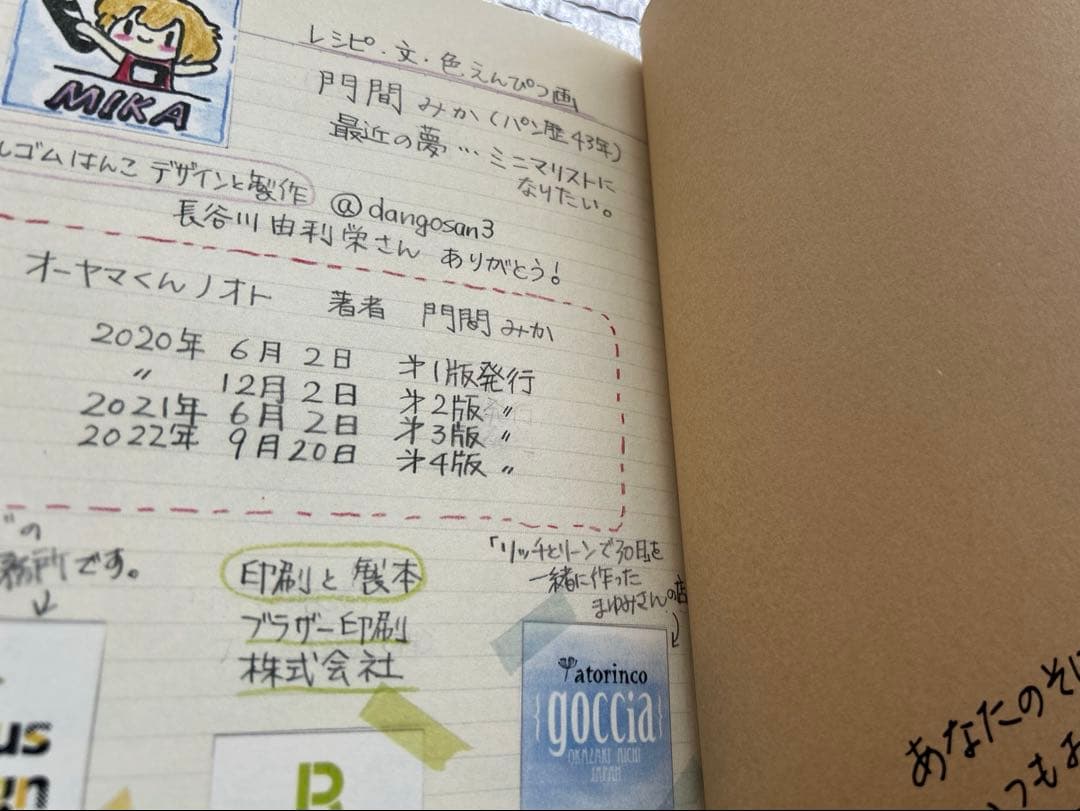 MIKA
レシピ・文・色えんぴつ画
門間 みか (パン歴43年)
最近の夢…ミニマリストに
なりたい。
ルゴムはんこ デザインと製作 @dangosan3
長谷川由利栄さん ありがとう!
オーヤマくんノオト 著者 門間みか
2020年 6月 2日 才1版発行
〃 12月 2日 才2版 〃
2021年 6月 2日 才3版 〃
2022年 9月20日 才4版 〃
の
務所です。
印刷と製本
ブラザー印刷
株式会社
「リッチとリーンで30日」を
一緒に作った
まゆみさんの店
us
un
B
atorinco
{goccia}
OKAZAKI AICHI
JAPAN
あなたのそば
いつもお